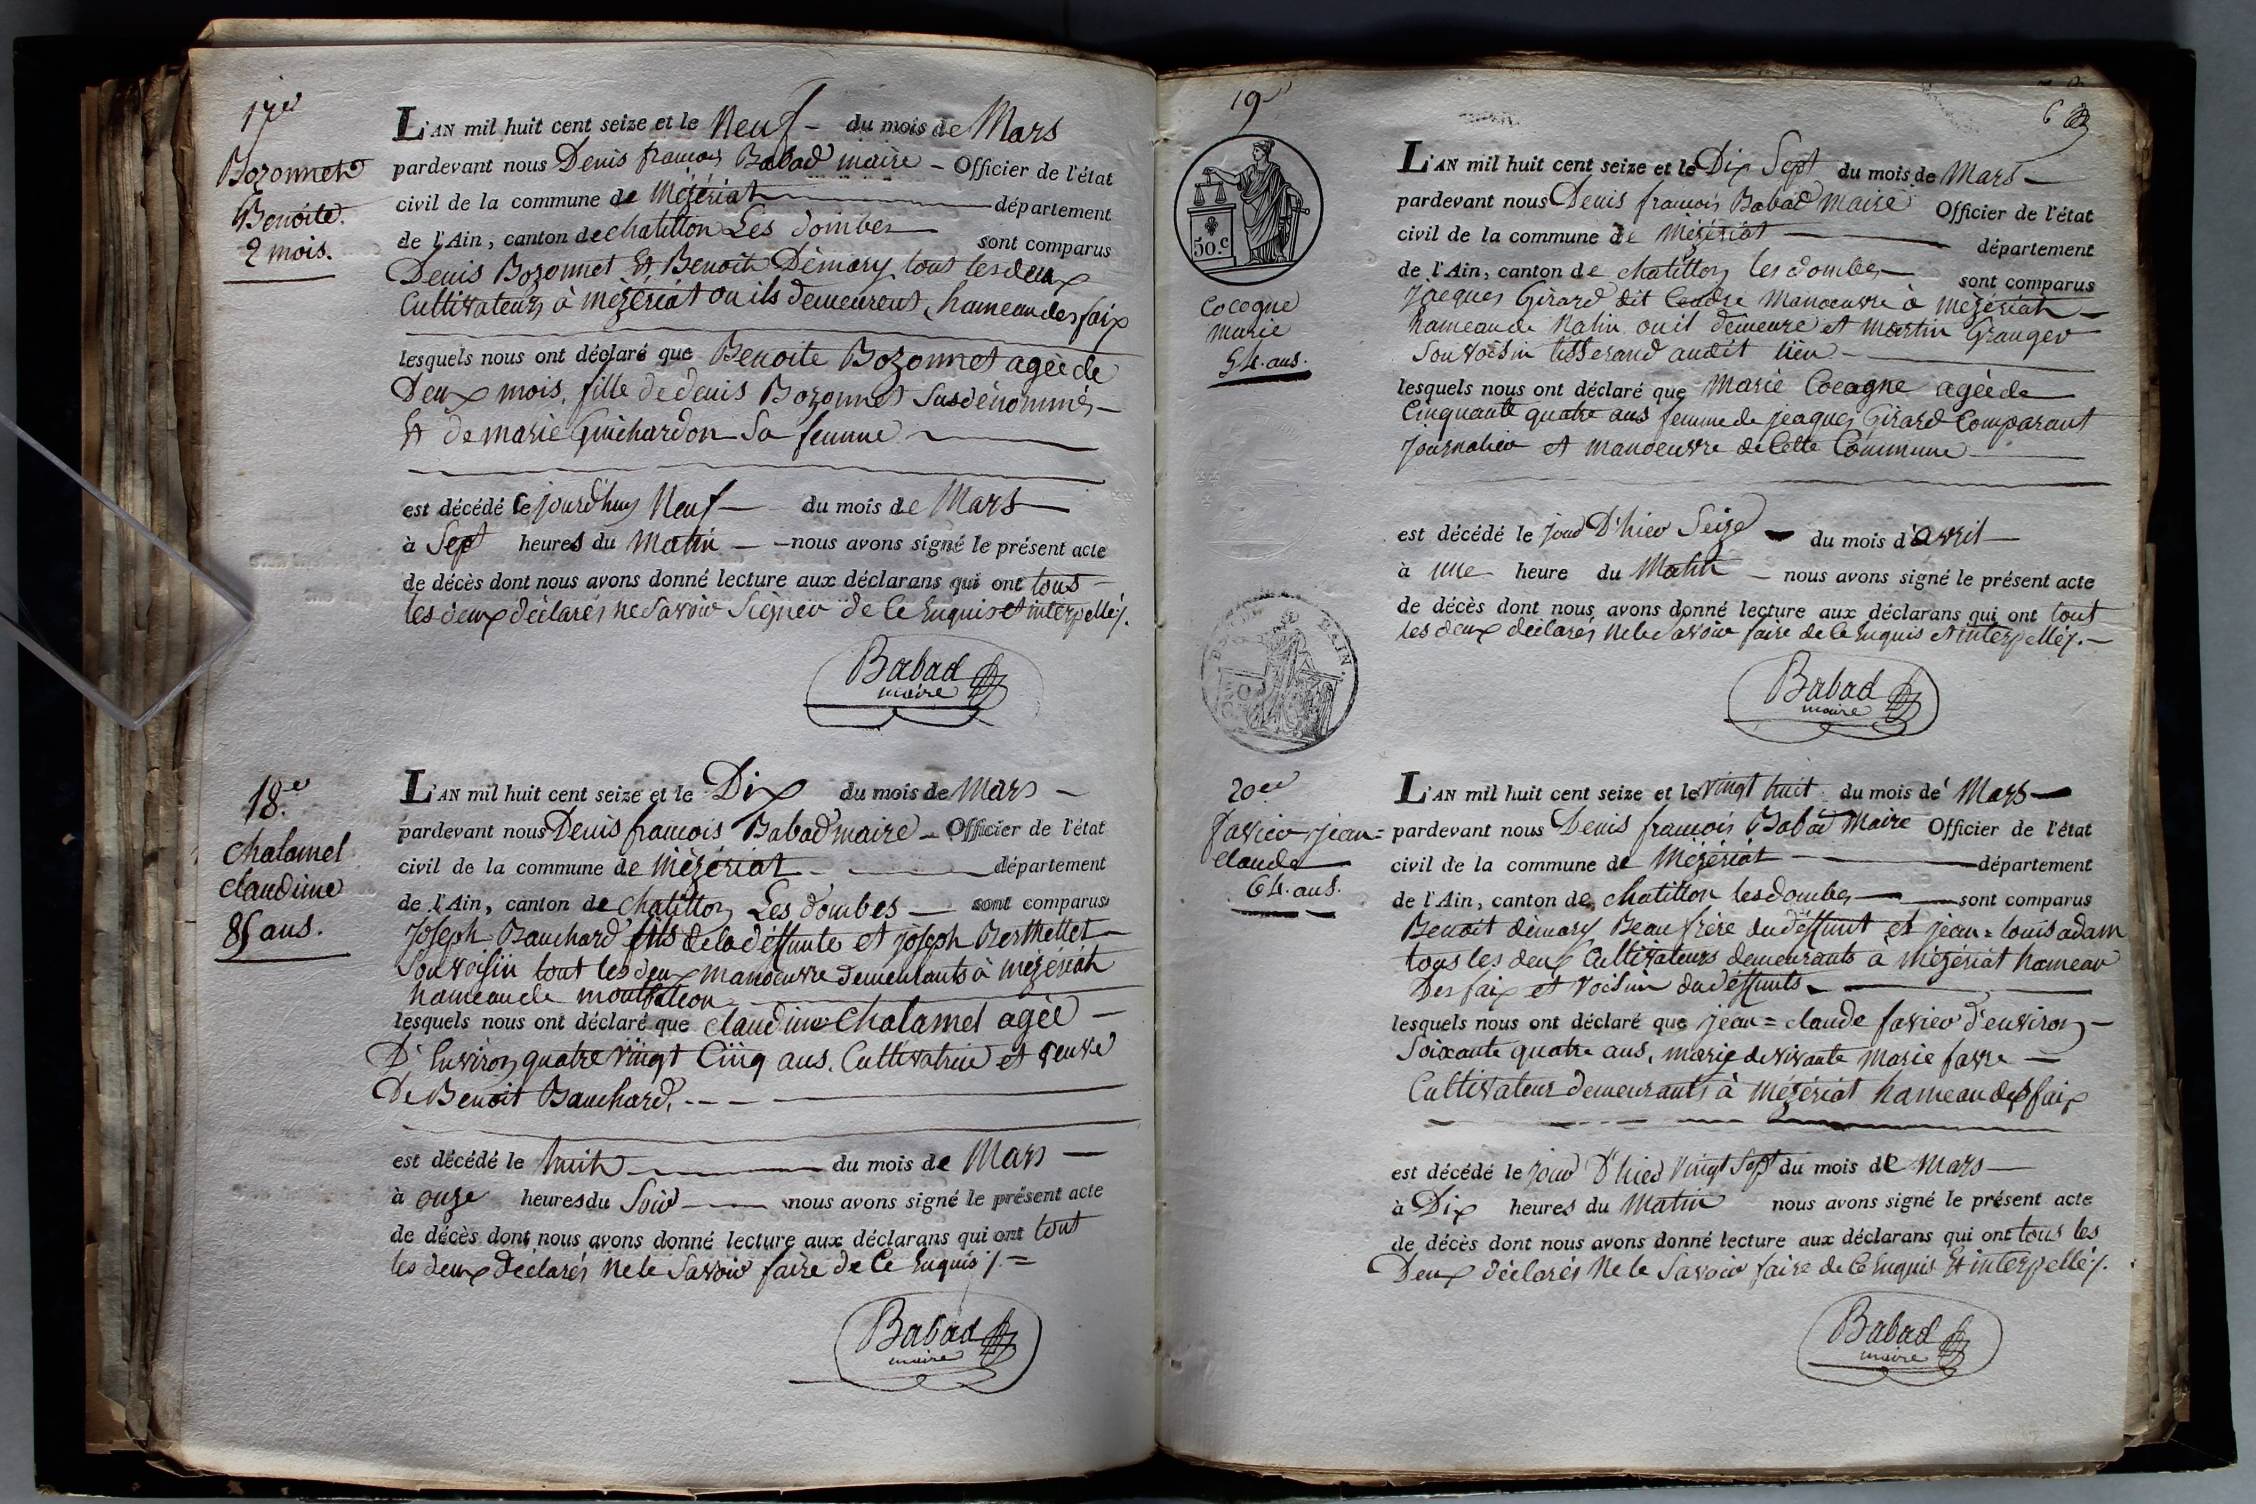 17e
Bozonnet
Benoite.
2 mois.
L'AN mil huit cent seize et le Neuf - du mois de Mars
pardevant nous Denis francois Babad maire - Officier de l'état
civil de la commune de Mézériat département
de l'Ain, canton de chatillon Les dombes sont comparus
Denis Bozonnet Et Benoit Démary, tous les deux
Cultivateurs à mézériat ou ils demeurent, hameau des faix
lesquels nous ont déclaré que Benoite Bozonnet agée de
Deux mois, fille de denis Bozonnet Susdénommés -
Et de marie Guichardon Sa femme
est décédé le jourd'huy Neuf - du mois de Mars
à Sept heures du Matin - - nous avons signé le présent acte
de décès dont nous avons donné lecture aux déclarans qui ont tous
les deux déclarés ne Savoir Signer de Ce Enquis et interpellés.
Babad
maire
18.e
chalamel
claudine
85 ans.
L'AN mil huit cent seize et le Dix du mois de Mars -
pardevant nous Denis francois Babad maire - Officier de l'état
civil de la commune de Mézériat département
de l'Ain, canton de chatillon Les dombes - sont comparus
Joseph Bauchard fils de la déffunte et joseph Berthellet -
Son voisin tout les deux manoeuvre demeurants à mézériat
hameau de
lesquels nous ont déclaré que claudine Chalamel agée -
D'Environ quatre vingt Cinq ans. Cultivatrice et veuve
De Benoit Bauchard.
est décédé le huit du mois de Mars -
à onze heures du Soir - nous avons signé le présent acte
de décès dont nous avons donné lecture aux déclarans qui ont tout
les deux déclarés Ne le Savoir faire de Ce Enquis /. =
Babad
maire
19e
63
50.c
Cocogne
marie
54. ans.
L'AN mil huit cent seize et le Dix Sept du mois de Mars -
pardevant nous Denis francois Babad Maire Officier de l'état
civil de la commune de Mézériat département
de l'Ain, canton de chatillon les dombes - sont comparus
Jacques Girard dit Manoeuvre à Mézériat -
hameau de ou il demeure et martin Granger
Son voisin tisserand audit lieu -
lesquels nous ont déclaré que Marie Cocagne agée de
Cinquante quatre ans femme de jeaques Girard Comparant
journalier et manoeuvre de Cette Commune
est décédé le jour D'hier Seize - du mois d'avril -
à une heure du Matin - nous avons signé le présent acte
de décès dont nous avons donné lecture aux déclarans qui ont tout
les deux déclarés Ne le Savoir faire de Ce Enquis et interpellés. -
AIN
Babad
maire
20e
favier jean =
claude
64. ans.
L'AN mil huit cent seize et le vingt huit du mois de Mars -
pardevant nous Denis francois Babad Maire Officier de l'état
civil de la commune de Mézériat - département
de l'Ain, canton de chatillon les dombes - sont comparus
Benoit démary Beau frère du déffunt et jean = louis adam
tous les deux Cultivateurs demeurants à Mézériat hameau
Des faix et voisin du déffunts -
lesquels nous ont déclaré que jean = claude favier d'environ -
Soixante quatre ans, marié de vivante Marie favre -
Cultivateur demeurants à Mézériat hameau des faix
est décédé le jour D'hier vingt Sept du mois de Mars -
à Dix heures du Matin nous avons signé le présent acte
de décès dont nous avons donné lecture aux déclarans qui ont tous les
Deux déclarés Ne le Savoir faire de Ce Enquis Et interpellés.
Babad
maire